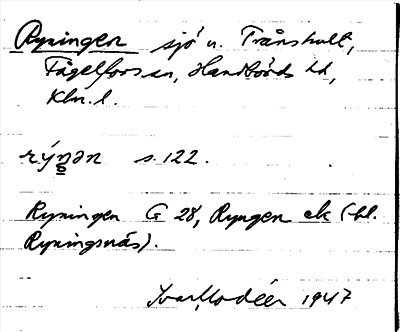 Ryningen sjö n. Trånshult,
Fågelfors sn, Handbörds hd,
Klm. l.
rýn̥ən s. 122.
Ryningen G 28, Ryngen ek (bl.
Ryningsnäs).
Ivar Modéer 1947